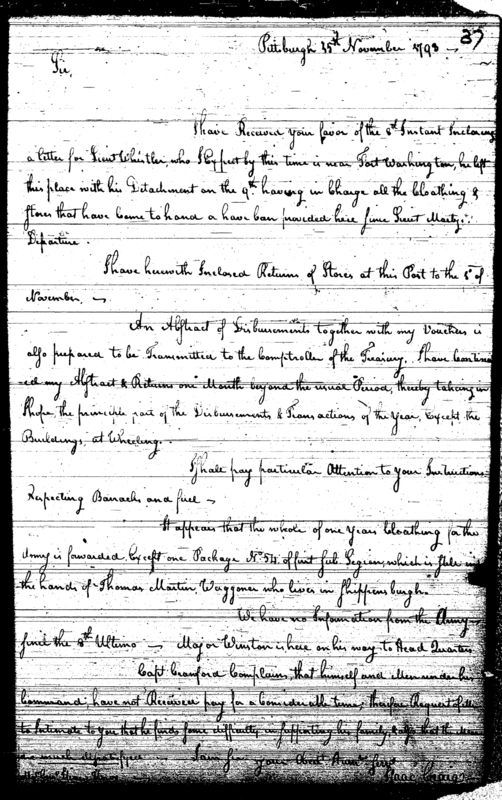 37
Pittsburgh 15th November 1793
Sir,
I have Received your favor of the 8th Instant Inclosing
a letter for Lieut Whistler, who I Expect by this time is near Fort Washington, he left
this place with his Detachment on the 9th having in Charge all the Cloathing &
Stores that have Come to hand & have been provided here since Lieut
Departure.
I have herewith Inclosed Returns of Stores at this Post to the 1st of
November.
An Abstract of Disbursements together with my Vouchers is
also prepared to be Transmitted to the Comptroller of the Treasury. I have Continu
ed my Abstract & Returns one Month beyond the usual Period, thereby taking in
I hope, the principle part of the Disbursements & Transactions of the Year, Except the
Buildings at Wheeling.
I shall pay particular Attention to your Instructions
Respecting Barracks and fuel
It appears that the whole of one Years Cloathing for the
Army is forwarded, Except one Package No 54 of first Sub Legion, which is still in
the hands of Thomas Martin, Waggoner who lives in Shippensburgh.
We have no Information from the Army
since the 8th Ultimo Major Winston is here on his way to Head Quarters
Capt Crawford Complains, that himself and Men under his
Command, have not Received pay for a Considerable time, therefore Requests
to Intimate to you that he finds some difficulty in supporting his family & also that the Men
are much I am Sir your Obedt Humle Servt
Isaac Craig